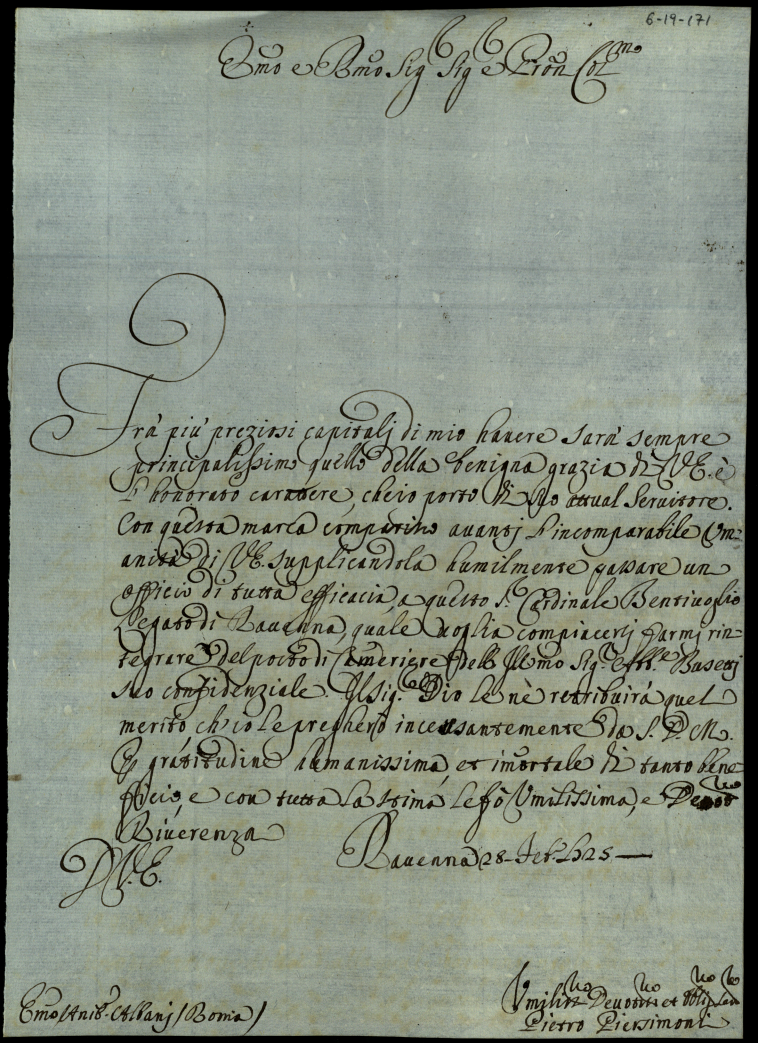 6-19-171
Emo e Rmo Sig Sig e Pron Colmo
Frà più preziosi capitalj di mio hauere sarà sempre
principalissimo quello della benigna grazia di V.E. è
l'honorato carattere, che io porto di suo attual Seruitore.
Con questa marca comparisco auantj l'incomparabile Vm=
anità di V.E. supplicandola humilmente passare un
officio di tutta efficacia, a questo S.r Cardinale Bentiuoglio
Legato di Rauenna, quale uoglia compiacersj farmj rin=
tegrare del posto di Cameriere dell' Illmo Sig.r Abb.e Basettj
suo confidenziale. Il Sig. Dio le nè retribuirà quel
merito ch'io le pregherò incessantemente da S. D. M.
gratitudine humanissima, et imortale di tanto bene
ficio, e con tutta la stima le fò Vmilissima, e Deuotma
Riuerenza
D V.E.
Rauenna 28 Feb. 1725
Emo Anib. Albanj (Roma)
Vmilis Deuotis et Oblig Seru
Pietro Piersimonli